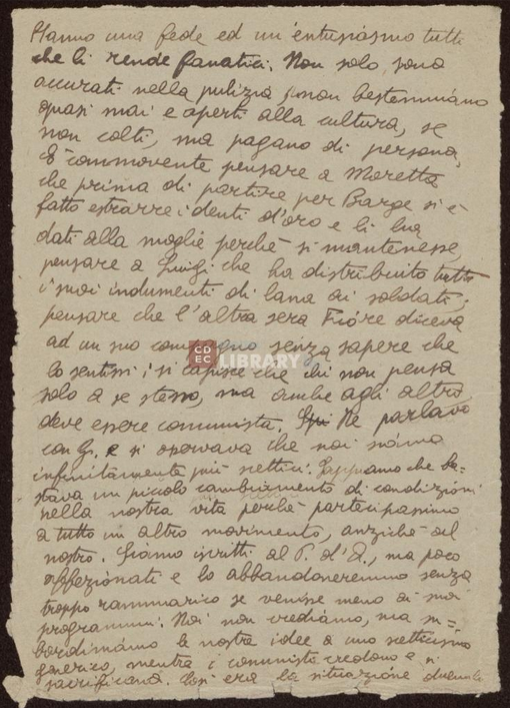 Hanno una fede ed un'entusiasmo tutti
che li rende fanatici. Non solo, sono
accurati nella pulizia, non bestemmiano
quasi mai e aperti alla cultura, se
non colti, ma pagano di persona,
È commovente pensare a Moretta
che prima di partire per Barge si è
fatto estrarre i denti d'oro e li ha
dati alla moglie perchè si mantenesse,
pensare a Luigi che ha distribuito tutti
i suoi indumenti di lana ai soldati;
pensare che l'altra sera Fiore diceva
ad un suo senza sapere che
CDEC LIBRARY
lo sentissi: si capisce che chi non pensa
solo a se stesso, ma anche agli altri
deve essere comunista. Ne parlavo
con G. e si osservava che noi siamo
infinitamente più scettici. Sappiamo che ba-
stava un piccolo cambiamento di condizioni
nella nostra vita perchè partecipassimo
a tutto un altro movimento, anzichè al
nostro. Siamo iscritti al P. d'A., ma poco
affezionati e lo abbandoneremmo senza
troppo rammarico se venisse meno ai suoi
programmi. Noi non crediamo, ma su-
bordiniamo le nostre idee a uno scetticismo
generico, mentre i comunisti credono e si
sacrificano. Così era la situazione durante